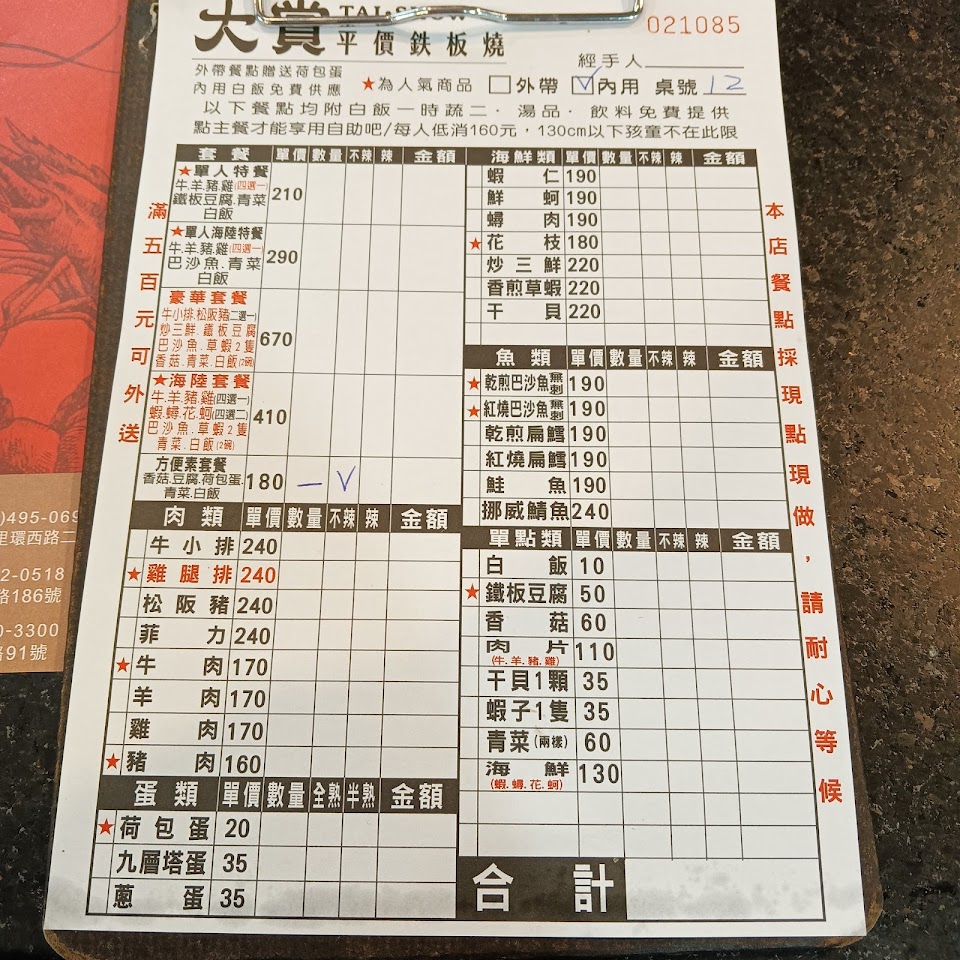 大賞 TAI-SHOW
平價鉄板燒
021085
經手人
外帶餐點贈送荷包蛋
內用白飯免費供應
★為人氣商品 外帶 V內用 桌號 12
以下餐點均附白飯一時蔬二．湯品．飲料免費提供
點主餐才能享用自助吧/每人低消160元，130cm以下孩童不在此限
滿五百元可外送
套餐 單價 數量 不辣 辣 金額
★單人特餐
牛.羊.豬.雞(四選一)
鐵板豆腐.青菜
白飯
210
★單人海陸特餐
牛.羊.豬.雞(四選一)
巴沙魚.青菜
白飯
290
豪華套餐
牛小排.松阪豬(二選一)
炒三鮮.鐵板豆腐
巴沙魚.草蝦2隻
香菇.青菜.白飯(2碗)
670
★海陸套餐
牛.羊.豬.雞(四選一)
蝦.蟳.花.蚵(四選二)
巴沙魚.草蝦2隻
青菜.白飯(2碗)
410
方便素套餐
香菇.豆腐.荷包蛋.
青菜.白飯
180 一 V
肉類 單價 數量 不辣 辣 金額
牛小排 240
★雞腿排 240
松阪豬 240
菲力 240
★牛肉 170
羊肉 170
雞肉 170
★豬肉 160
蛋類 單價 數量 全熟 半熟 金額
★荷包蛋 20
九層塔蛋 35
蔥蛋 35
海鮮類 單價 數量 不辣 辣 金額
蝦仁 190
鮮蚵 190
蟳肉 190
★花枝 180
炒三鮮 220
香煎草蝦 220
干貝 220
魚類 單價 數量 不辣 辣 金額
★乾煎巴沙魚無刺 190
★紅燒巴沙魚無刺 190
乾煎扁鱈 190
紅燒扁鱈 190
鮭魚 190
挪威鯖魚 240
單點類 單價 數量 不辣 辣 金額
白飯 10
★鐵板豆腐 50
香菇 60
肉片 110
(牛.羊.豬.雞)
干貝1顆 35
蝦子1隻 35
青菜(兩樣) 60
海鮮 130
(蝦.蟳.花.蚵)
合計
本店餐點採現點現做，請耐心等候
)495-069
里環西路二
2-0518
路186號
0-3300
路91號